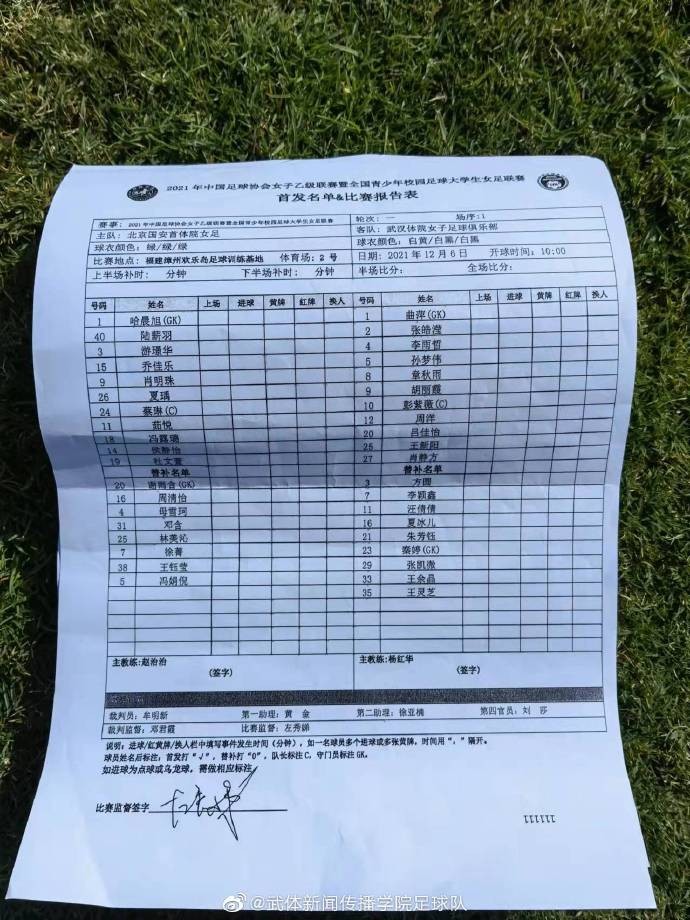 2021年中国足球协会女子乙级联赛暨全国青少年校园足球大学生女足联赛
首发名单&比赛报告表
赛事：2021年中国足球协会女子乙级联赛暨全国青少年校园足球大学生女足联赛 轮次：一 场序：1
主队：北京国安首体院女足 客队：武汉体院女子足球俱乐部
球衣颜色：绿/绿/绿 球衣颜色：白黄/白黑/白黑
比赛地点：福建漳州欢乐岛足球训练基地 体育场：2号 日期：2021年12月6日 开球时间：10:00
上半场补时： 分钟 下半场补时： 分钟 半场比分： 全场比分：
号码 姓名 上场 进球 黄牌 红牌 换人 号码 姓名 上场 进球 黄牌 红牌 换人
1 哈晨旭(GK) 1 曲萍(GK)
40 陆薪羽 2 张皓滢
3 游璟华 4 李雨哲
15 乔佳乐 5 孙梦伟
9 肖明珠 8 章秋雨
26 夏瑀 9 胡丽霞
24 蔡琳(C) 10 彭紫薇(C)
11 茹悦 12 周洋
18 冯露璐 20 吕佳怡
14 侯静怡 25 王新阳
19 杜文萱 27 肖静方
替补名单 替补名单
20 雨含(GK) 3 方圆
16 周清怡 7 李颖鑫
4 母雪珂 11 汪倩倩
31 邓含 16 夏冰儿
25 林美沁 21 朱芳钰
7 徐菁 23 秦婷(GK)
38 王钰莹 29 张凯激
5 冯娟倪 33 王余晶
35 王灵芝
主教练:赵治治 主教练:杨红华
(签字) (签字)
裁判员：牟明新 第一助理：黄 金 第二助理：徐亚楠 第四官员：刘 莎
裁判监督：邓君霞 比赛监督：左秀娣
说明：进球/红黄牌/换人栏中填写事件发生时间（分钟），如一名球员多个进球或多张黄牌，时间用“，”隔开。
球员姓名后标注：首发打“√”，替补打“O”，队长标注C，守门员标注GK。
如进球为点球或乌龙球，需做相应标注
比赛监督签字
111111
@武体新闻传播学院足球队